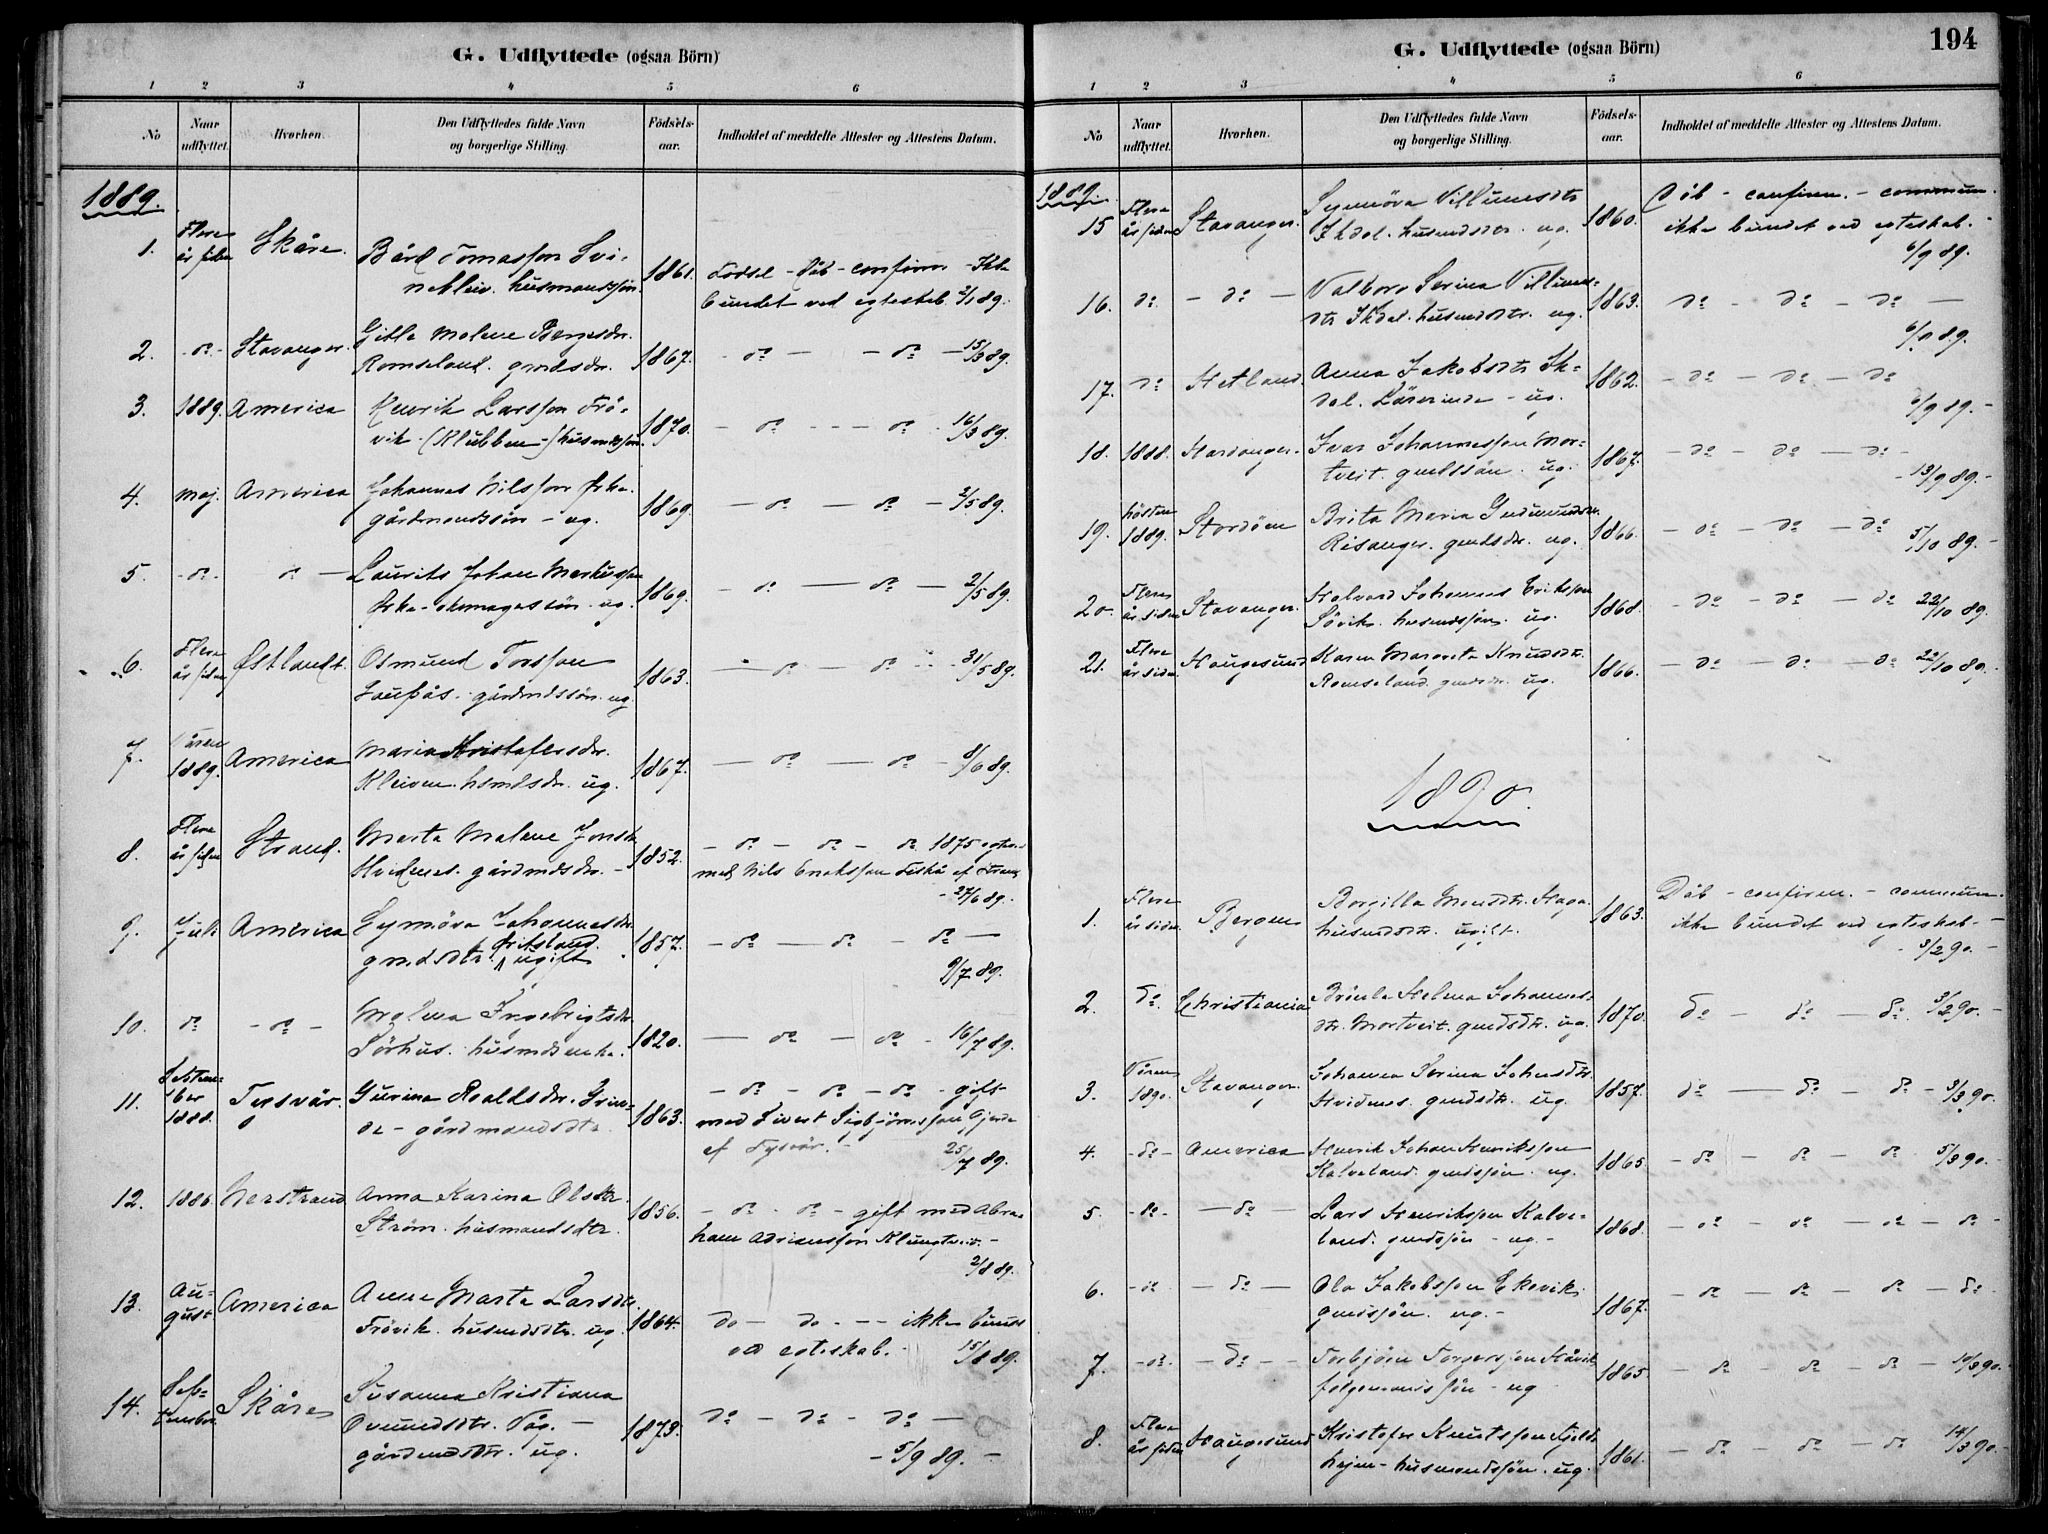 G. Udflyttede (ogsaa Börn)
1 2 3 4 5 6
No
Naar udflyttet.
Hvorhen.
Den Udflyttedes fulde Navn og borgerlige Stilling.
Födsels-aar.
Indholdet af meddelte Attester og Attestens Datum.
1889.
1. Flere år siden Skåre. Bård Tomasson Svi-
nekleiv. husmandssön. 1861. Födsel - Dåb - confirm - Ikke
bundet ved egteskab 2/1 89.
2. - do - Stavanger. Gitle Malene Børgesdr.
Romseland. grmdsdr. 1867. - do - - do - 15/3 89.
3. 1889. America Henrik Larsson Frö-
vik (Klubben) husmdssön 1870. - do - - - do - 16/3 89.
4. Maj. America Johannes Nilsson Årke.
gårdmandssön - ug. 1869. - do - do - 2/5 89.
5. - do - do - Laurits Johan Markusson
Årke - ug. 1869. - do - do - 2/5 89.
6. Flere år siden Østlandt. Osmund Torsson
gårdmdssön. ug. 1863. - do - do - 31/5 89.
7. Våren 1889. America Maria Kristofersdr.
Kleiven. hsmdsdr. ug. 1867. - do - do - 8/6 89.
8. Flere år siden Strand. Marta Malene Jonsdr
Hvidnes. gårdmdsdr. - 1852. - do - do - do 1875 egtev.
med Nils Enokson Fiskå af Strand
- 27/6 89.
9. Juli America Synnöva Johannesdtr.
gmdsdtr. Øritsland. ugift 1857. - do - do - do -
9/7 89.
10. do - do - Malena Ingebrigtsdr.
Sörhus. husmdsenke. 1820. - do - do - 16/7 89.
11. September 1888. Tysvär. Gurina Roaldsdr. Grin-
de - gårdmandsdtr. 1863. - do - do - do - gift
med Sivert Sigbjörnsson Gjerde
af Tysvär. - 25/7 89.
12. 1886. Nerstrand Anna Karina Olsdtr.
Ström. husmandsdtr. 1856. - do - do - gift med Abra-
ham Adriansson -
2/8 89.
13. August America Anne Marta Larsdtr.
Frövik. husmdsdtr. ug. 1864. do - do - - - ikke bundet
ved egteskab. - 15/8 89.
14. September Skåre Susanna Kristiana
Ommundsdtr. Våg. -
gårdmdsdtr. ug. 1873. do - do - do -
- 5/9 89. -
194
G. Udflyttede (ogsaa Börn)
1 2 3 4 5 6
No
Naar udflyttet.
Hvorhen.
Den Udflyttedes fulde Navn og borgerlige Stilling.
Födsels-aar.
Indholdet af meddelte Attester og Attestens Datum.
1889.
15 Flere år siden Stavanger. Synnöva Villumsdtr
Ikdal. husmdsdtr. ug. 1860. Dåb - confirm. - commun.
ikke bundet ved egteskab. -
6/9 89.
16. do. - do - Valborg Serina Villums-
dtr Ikdal. husmdsdtr. ug. 1863. do - do - do -
6/9 89.
17. do Hetland. Anna Jakobsdtr Ik-
dal. Lärerinde - ug. 1862. - do - do - do
6/9 89. -
18. 1888. Hardanger. Ivar Johannesson Mor-
tveit. gmdssön. ug. 1867. - do - do - do -
- 13/9 89. -
19. hösten 1889. Stordöen Brita Maria Gudmundsdr.
Risanger. gmdsdr. ug. 1866. - do - do - do 5/10 89. -
20. Flere år siden Stavanger. Halvard Johannes Eriksson
Sövik. husmdssön. ug. 1868. - do - do - do 22/10 89.
21. Flere år siden Haugesund Karen Margreta Knudsdtr.
Romseland. gmdsdr. ug. 1866. - do - do - do 22/10 89.
1890.
1. Flere år siden Bergen Borgilla Monsdtr. Haga.
husmdsdtr. ugift. 1863. Dåb - confirm. - commun.
ikke bundet ved egteskab. -
- 3/2 90. -
2. do. Christiania Helena Johannes-
dtr. Mortveit. gmdsdtr. ug. 1870. do - do - do. 3/2 90. -
3. Våren 1890. Stavanger. Johanna Serina Johnsdtr.
Hvidnes. gmdsdtr. ug. 1857. do - do - do - 3/3 90.
4. - do - America Henrik Johan Henriksson
Kalveland. gmdssön. ug. 1865 - do - do - do 5/3 90. -
5. - do - - do - Lars Henriksson Kalve-
land. gmdssön - ug. - 1868. - do - do - do - do -
6. - do - do - Ola Jakobsson Ekevik.
gmdssön. ug. - 1867. - do - do - do - do
7. - do - - do - - Torbjörn Torgersson Håvik
- ug 1865 - do - do - do - 10/3 90. -
8. Flere år siden Haugesund Kristofer Knutsson
- husmandssön. ug. 1861. - do - do - do 14/3 90. -